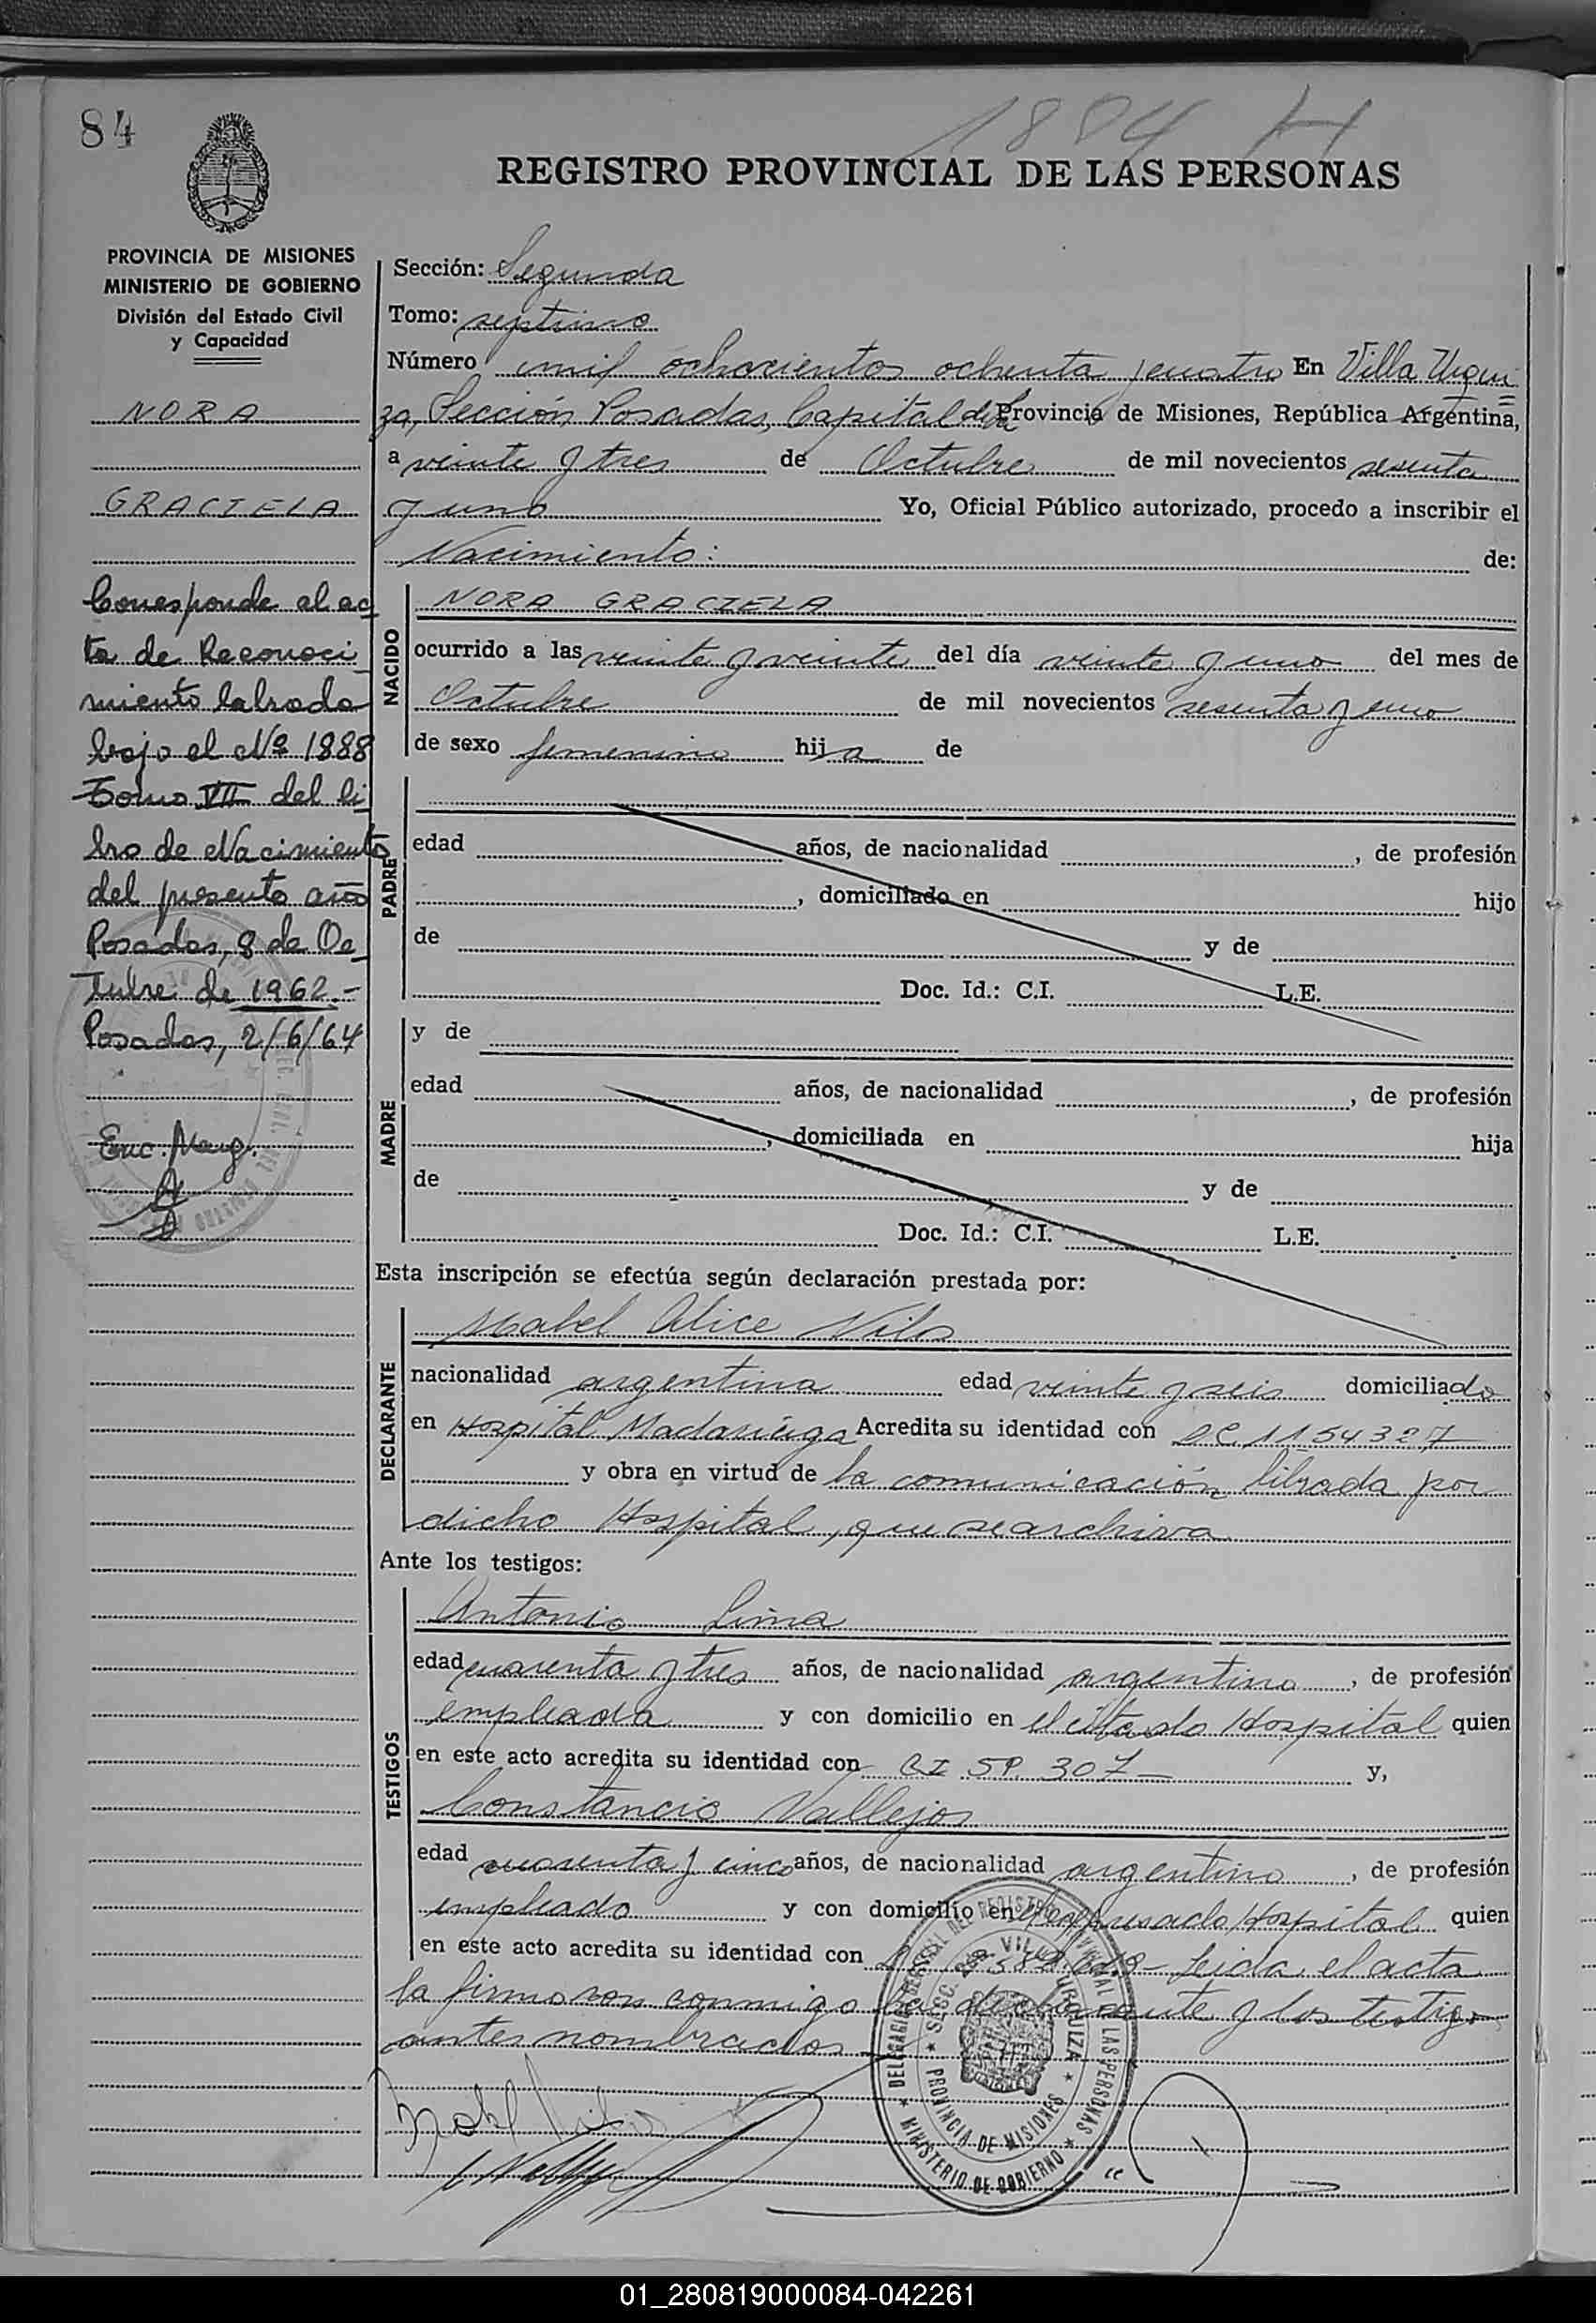 84
1884 H
REGISTRO PROVINCIAL DE LAS PERSONAS
PROVINCIA DE MISIONES
MINISTERIO DE GOBIERNO
División del Estado Civil
y Capacidad
NORA
GRACIELA
Corresponde al ac
ta de Reconoci
miento labrada
bajo el Nº 1888
Tomo VII del li
bro de Nacimiento
del presente año
Posadas, 8 de Oc
tubre de 1962.-
Posadas, 2/6/64
Sección: Segunda
Tomo: septimo
Número mil ochocientos ochenta y cuatro En Villa Urqui
za, Sección Posadas, Capital de la Provincia de Misiones, República Argentina,
a veinte y tres de Octubre de mil novecientos sesenta
y uno Yo, Oficial Público autorizado, procedo a inscribir el
Nacimiento: de:
NACIDO
NORA GRACIELA
ocurrido a las veinte y veinte del día veinte y uno del mes de
Octubre de mil novecientos sesenta y uno
de sexo femenino hija de
PADRE
edad años, de nacionalidad , de profesión
, domiciliado en hijo
de y de
Doc. Id.: C.I. L.E.
MADRE
y de
edad años, de nacionalidad , de profesión
, domiciliada en hija
de y de
Doc. Id.: C.I. L.E.
Esta inscripción se efectúa según declaración prestada por:
DECLARANTE
Mabel Alice
nacionalidad argentina edad veinte y seis domiciliada
en Hospital Madariaga Acredita su identidad con 1154327
y obra en virtud de la comunicación librada por
dicho Hospital, que se archiva
Ante los testigos:
TESTIGOS
Antonio Lima
edad cuarenta y tres años, de nacionalidad argentina, de profesión
empleada y con domicilio en el citado Hospital quien
en este acto acredita su identidad con CI SP. 307 y,
Constancio Vallejos
edad cuarenta y cinco años, de nacionalidad argentino, de profesión
empleado y con domicilio en expresado Hospital quien
en este acto acredita su identidad con Leida el acta
la firmaron conmigo la declarante y los testigos
antes nombrados
DELEGACION GENERAL DEL REGISTRO PROVINCIAL DE LAS PERSONAS
SECC. 2da. VILLA URQUIZA
PROVINCIA DE MISIONES
MINISTERIO DE GOBIERNO
01_280819000084-042261